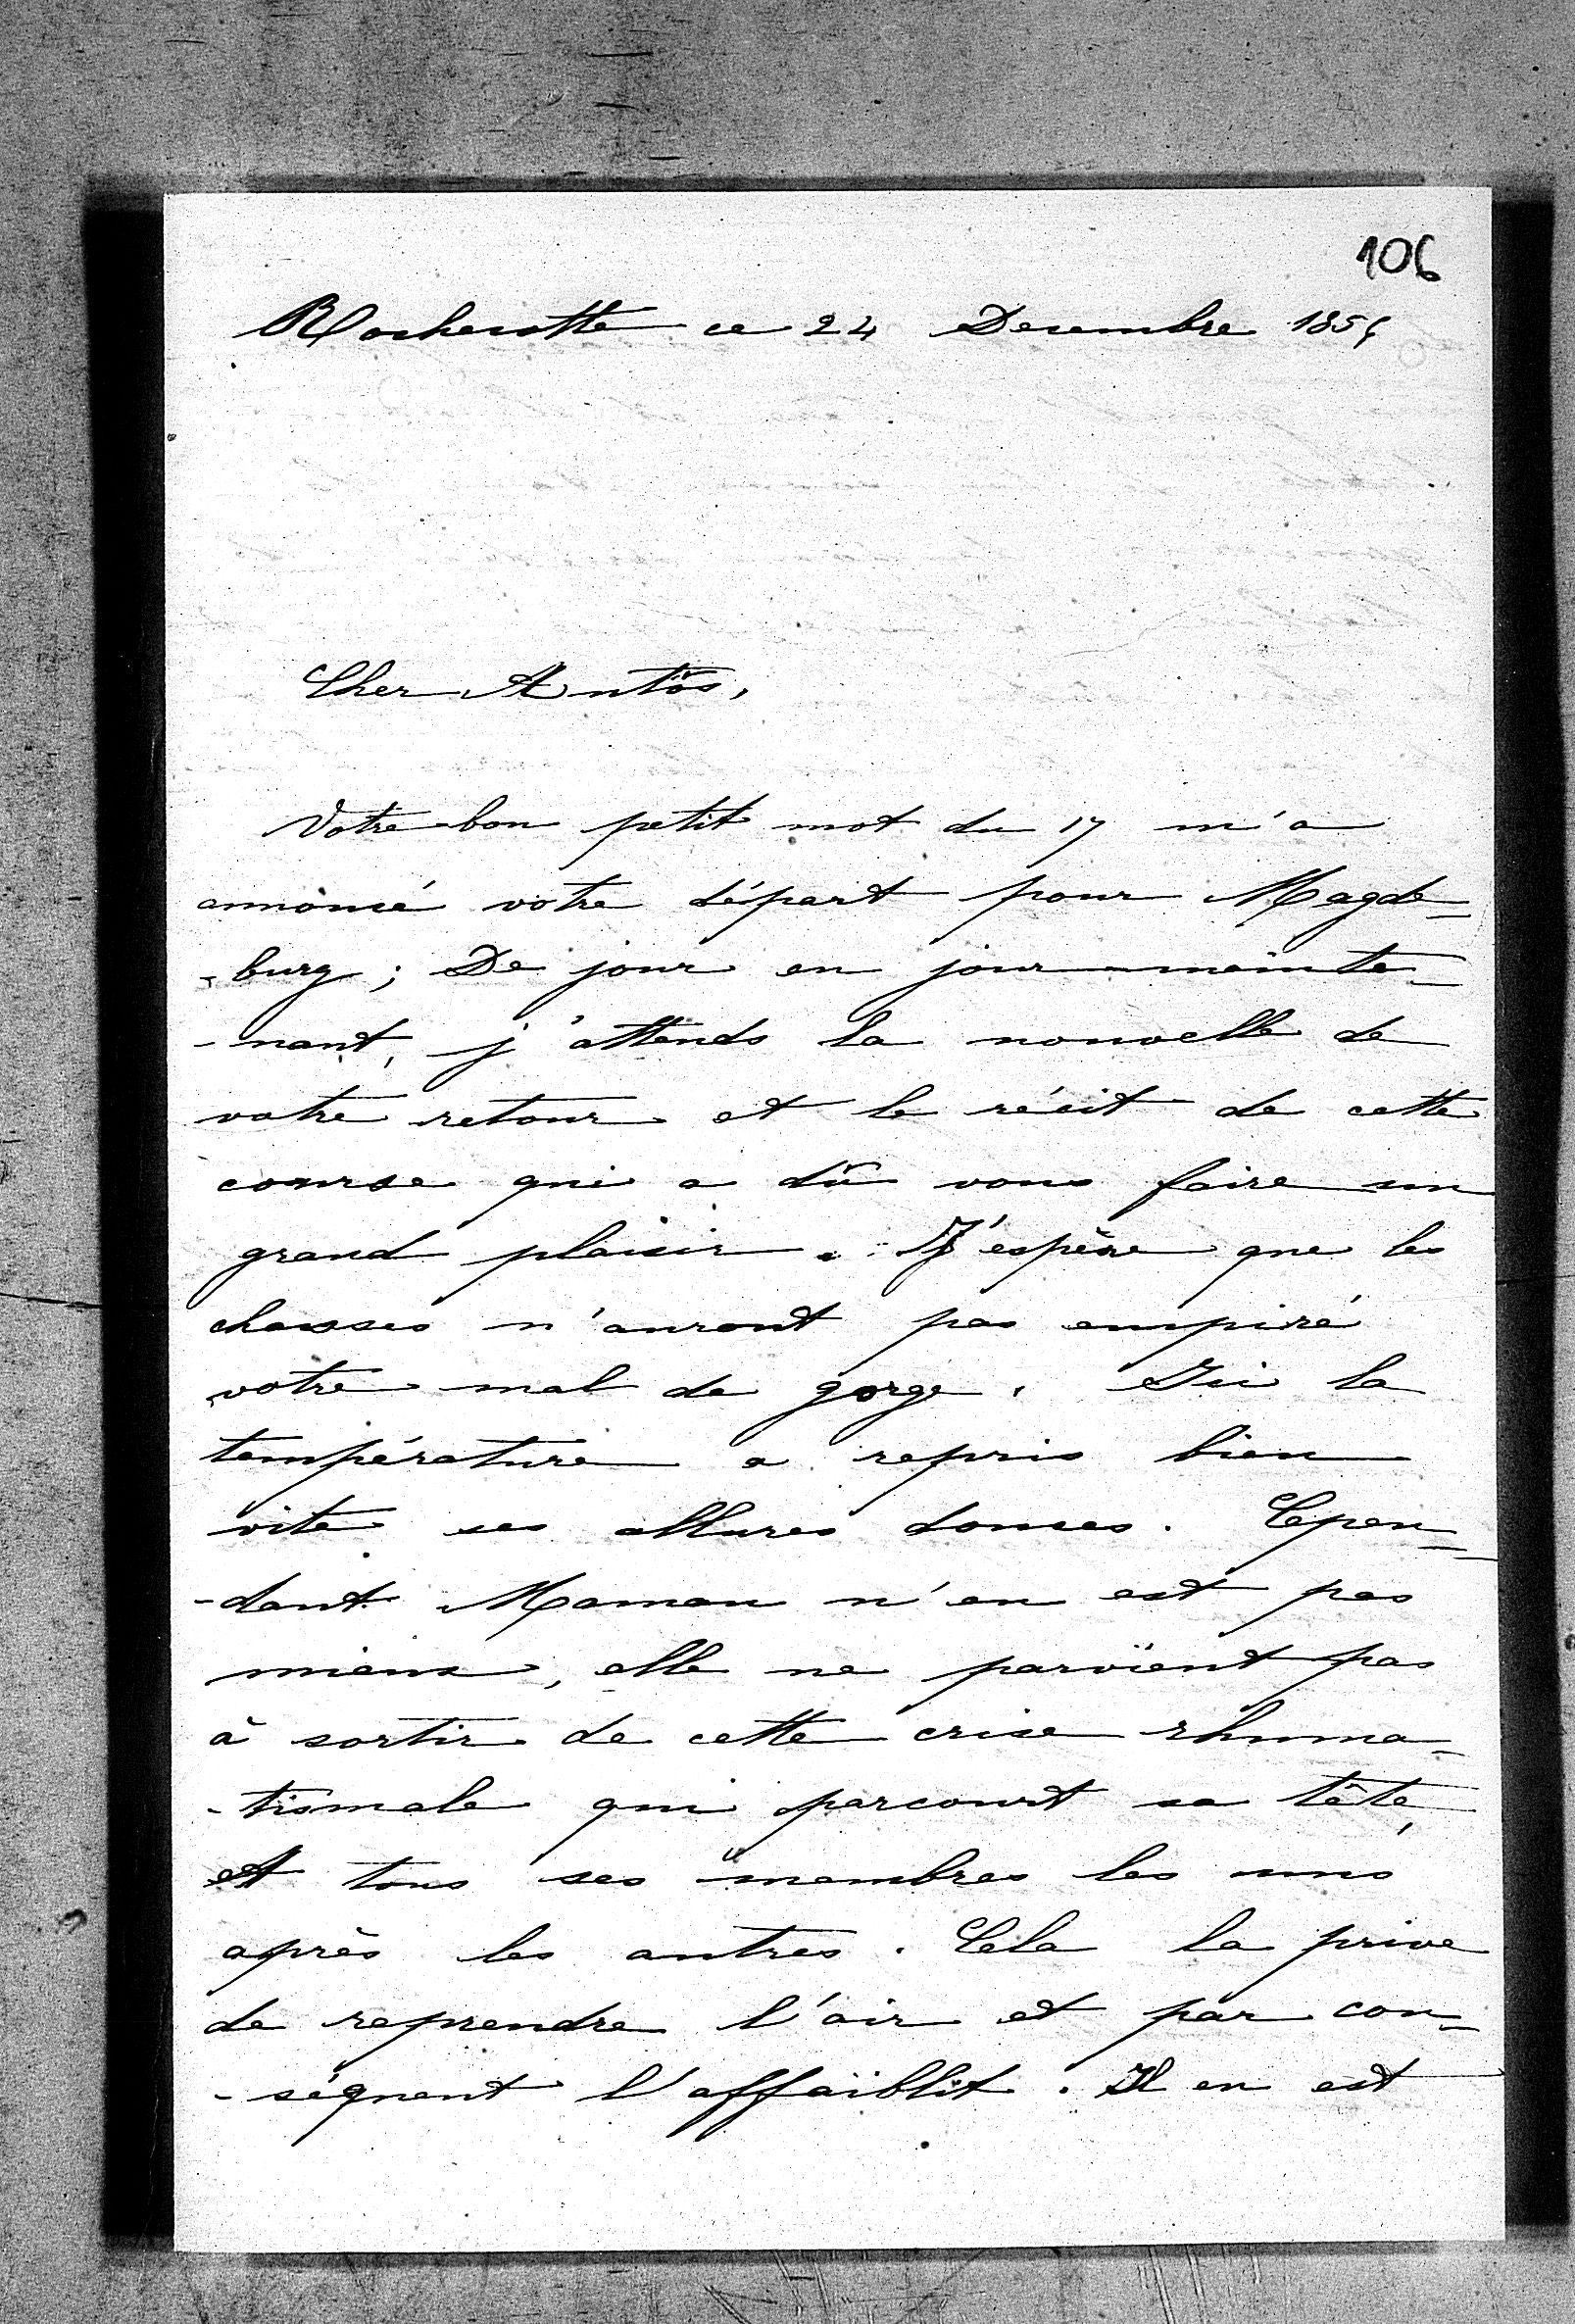 106
Rochecotte ce 24 Decembre 185
Cher Antôs,
Votre bon petit mot du 17 m'a
annoncé votre départ pour Magde-
-burg; De jour en jour mainte-
-nant, j'attends la nouvelle de
votre retour et le récit de cette
course qui a dû vous faire un
grand plaisir. J'espère que les
chasses n'auront pas empiré
votre mal de gorge. Ici la
température a repris bien
vite ses allures douces. Cepen-
-dant Maman n'en est pas
mieux, elle ne parvient pas
à sortir de cette crise rhuma-
-tismale qui parcourt sa tête,
et tous ses membres les uns
après les autres. Cela la prive
de reprendre l'air et par con-
-séquent l'affaiblit. Il en est